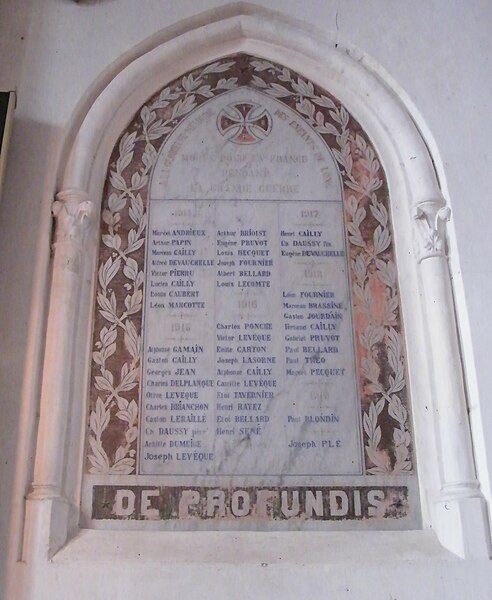 A LA GLORIEUSE MÉMOIRE DES ENFANTS DE
MORTS POUR LA FRANCE
PENDANT
LA GRANDE GUERRE
1914
Marcel ANDRIEUX
Arthur PAPIN
CAILLY
Alfred DEVAUCHELLE
Victor PIERRU
Lucien CAILLY
CAUBERT
Léon MARCOTTE
1915
Alphonse GAMAIN
Gaston CAILLY
Georges JEAN
Charles DELPLANQUE
Olive LEVÊQUE
Charles BRIANCHON
Gaston LERAILLÉ
Ch DAUSSY père
Achille DUMEIGE
Joseph LEVÊQUE
Arthur BRIOIST
Eugène PRUVOT
Louis HECQUET
Joseph FOURNIER
Albert BELLARD
Louis LECOMTE
1916
Charles PONCHE
Victor LEVÊQUE
Emile CARTON
Joseph LASORNE
Alphonse CAILLY
Camille LEVÊQUE
Eloi TAVERNIER
Henri RAYEZ
Eloi BELLARD
Henri SENÉ
1917
Henri CAILLY
Ch DAUSSY fils
Eugène DEVAUCHELLE
1918
Léon FOURNIER
BRASSINE
Gaston JOURDAIN
Fernand CAILLY
Gabriel PRUVOT
Paul BELLARD
Paul THEO
PECQUET
1919
Paul BLONDIN
Joseph PLÉ
DE PROFUNDIS